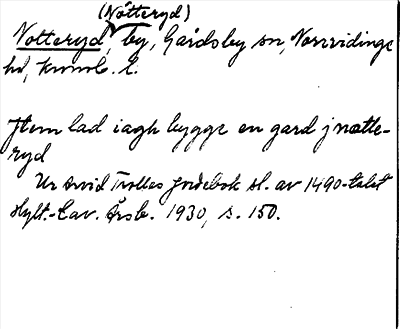 (Notteryd)
Notteryd, by, Gårdsby sn, Norrvidinge
hd, Kronob. l.
Item lad iagh bygge en gard j nøtte-
ryd
Ur Arvid Trolles jordebok sl. av 1490-talet
Hylt.-Cav. Årsb. 1930, s. 150.